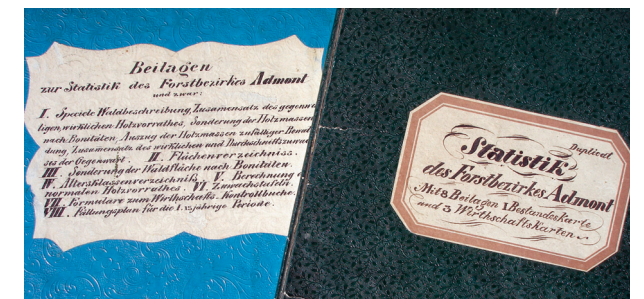 Beilagen
zur Statistik des Forstbezirkes Admont
und zwar:
I. Specielle Waldbeschreibung, Zusamensatz des gegenwär
tigen, wirklichen Holzvorrathes, Sonderung der Holzmassen
nach Bonitäten, Auszug der Holzmassen zufälliger
dung, Zusamensatz des wirklichen und Durchschnittszuwa
ses der Gegenwart. II. Flächenverzeichniss.
III. Sonderung der Waldfläche nach Bonitäten.
IV. Altersklassenverzeichniss. V. Berechnung d
normalen Holzvorrathes. VI. Zuwachstafeln.
VII. Formulare zum Wirthschafts-Kontrollbuche.
VIII. Fällungsplan für die I. 10jährige Periode.
Duplicat
Statistik
des Forstbezirkes Admont
Mit 8 Beilagen 1 Bestandeskarte
und 3 Wirthschaftskarten